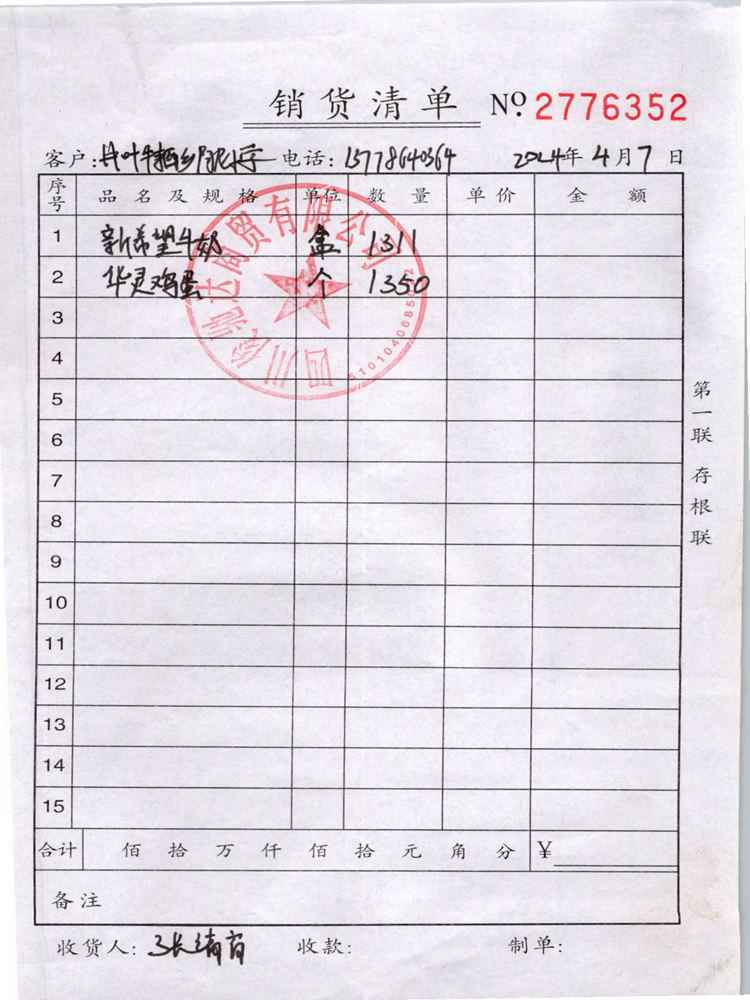 销货清单 № 2776352
客户: 电话: 13778640364 2024年4月7日
序号 品名及规格 单位 数量 单价 金额
1 新希望牛奶 盒 1311
2 华灵鸡蛋 个 1350
3
4
5
6
7
8
9
10
11
12
13
14
15
合计 佰 拾 万 仟 佰 拾 元 角 分 ¥
备注
收货人: 收款: 制单:
第一联 存根联
四川 驰达商贸有限公司